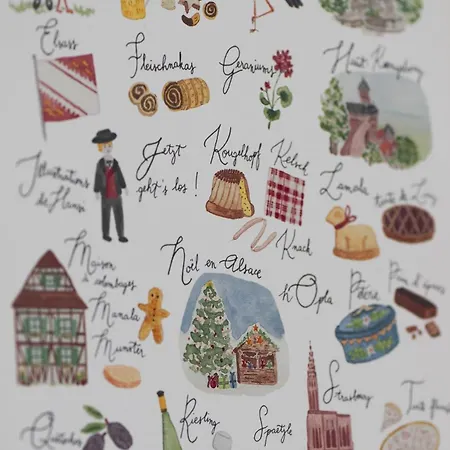 Elsass
Fleischnakas
Geraniums
Haut Koenigsbourg
Illustrations
de Hansi
Jetzt
geht's los !
Kougelhopf
Kelsch
Knack
Lamala
Maison
à colombages
Manala
Munster
Noël en Alsace
h'Opla
Poterie
Pain d'épices
Quetsches
Riesling
Spaetzle
Strasbourg